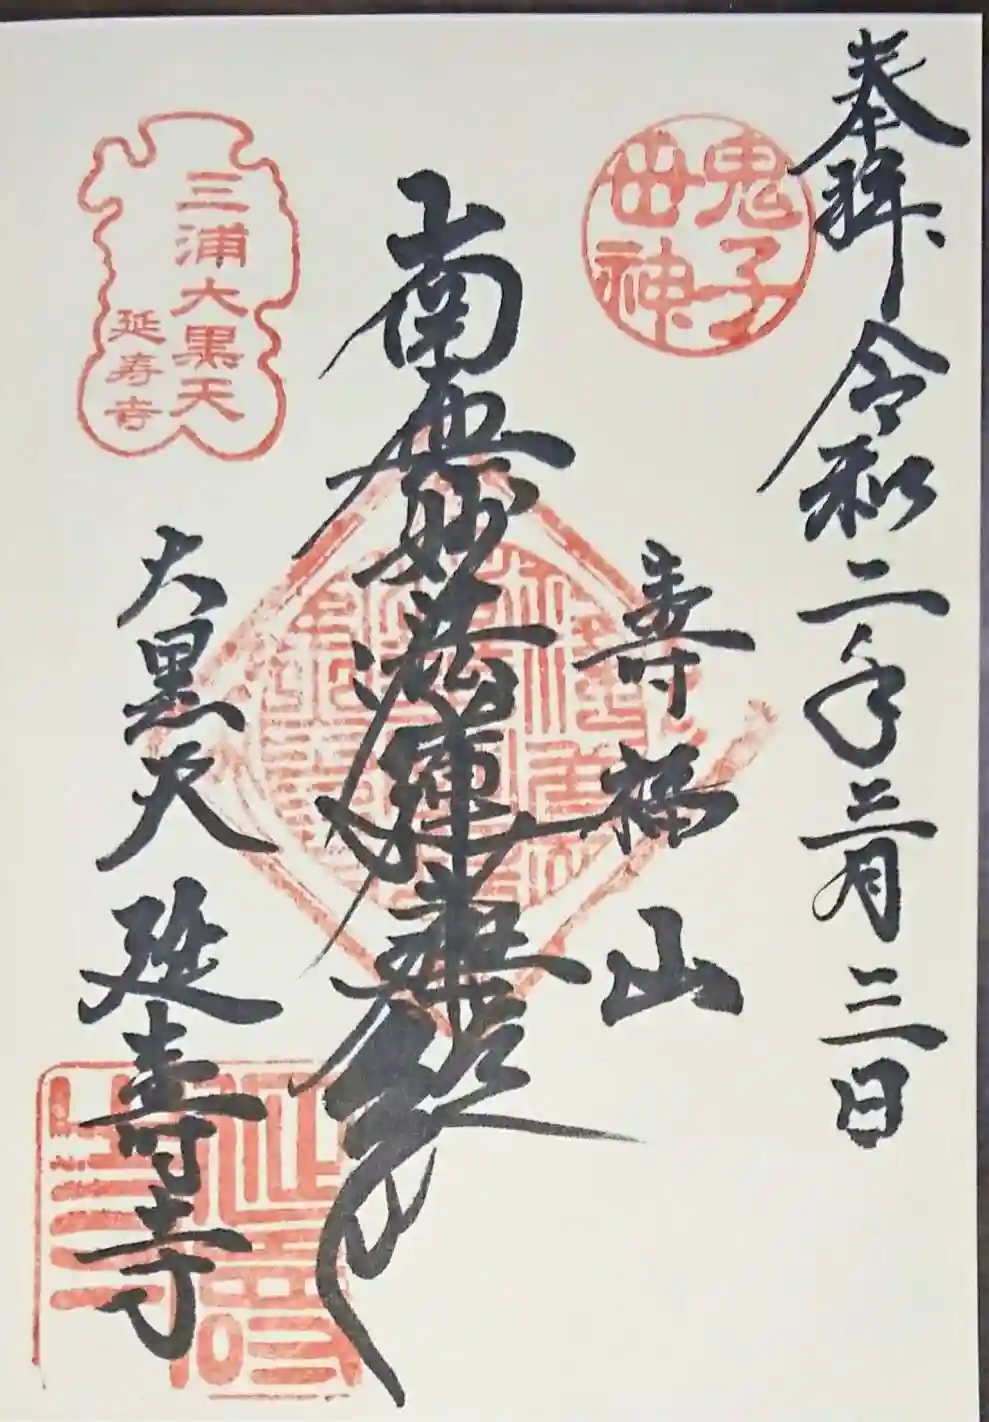 奉拝
令和二年三月三日
鬼子
母神
寿福山
南無妙法蓮華経
三浦大黒天
延寿寺
大黒天
延寿寺